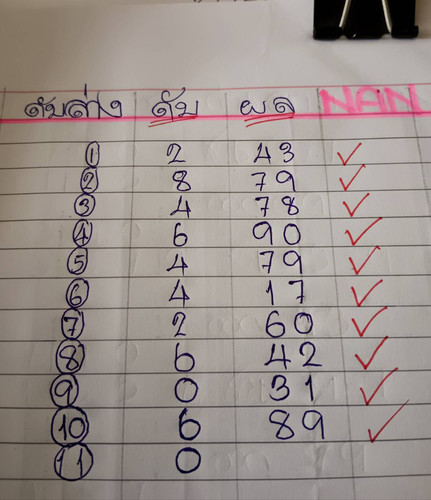 ดับล่าง ดับ ผล NAN
1 2 43
2 8 79
3 4 78
4 6 90
5 4 79
6 4 17
7 2 60
8 6 42
9 0 31
10 6 89
11 0